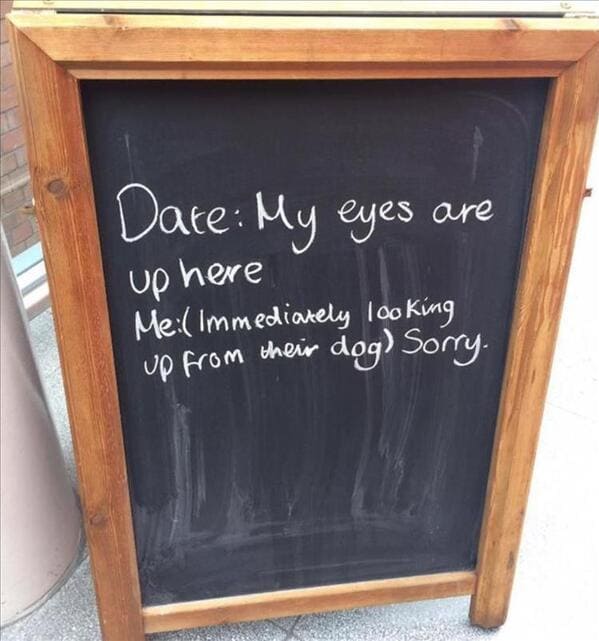 Date: My eyes are
up here
Me:(Immediately looking
up from their dog) Sorry.